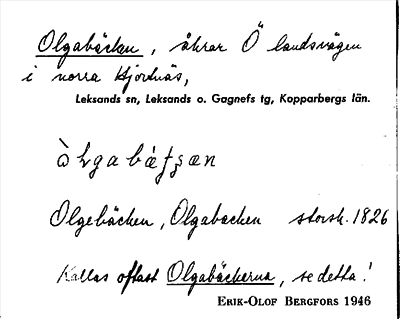 Olgabäcken, åkrar Ö landsvägen
i norra Hjortnäs,
Leksands sn, Leksands o. Gagnefs tg, Kopparbergs län.
Olgebäcken, Olgabacken storsk. 1826
Kallas oftast Olgabäckerna, se detta!
ERIK-OLOF BERGFORS 1946